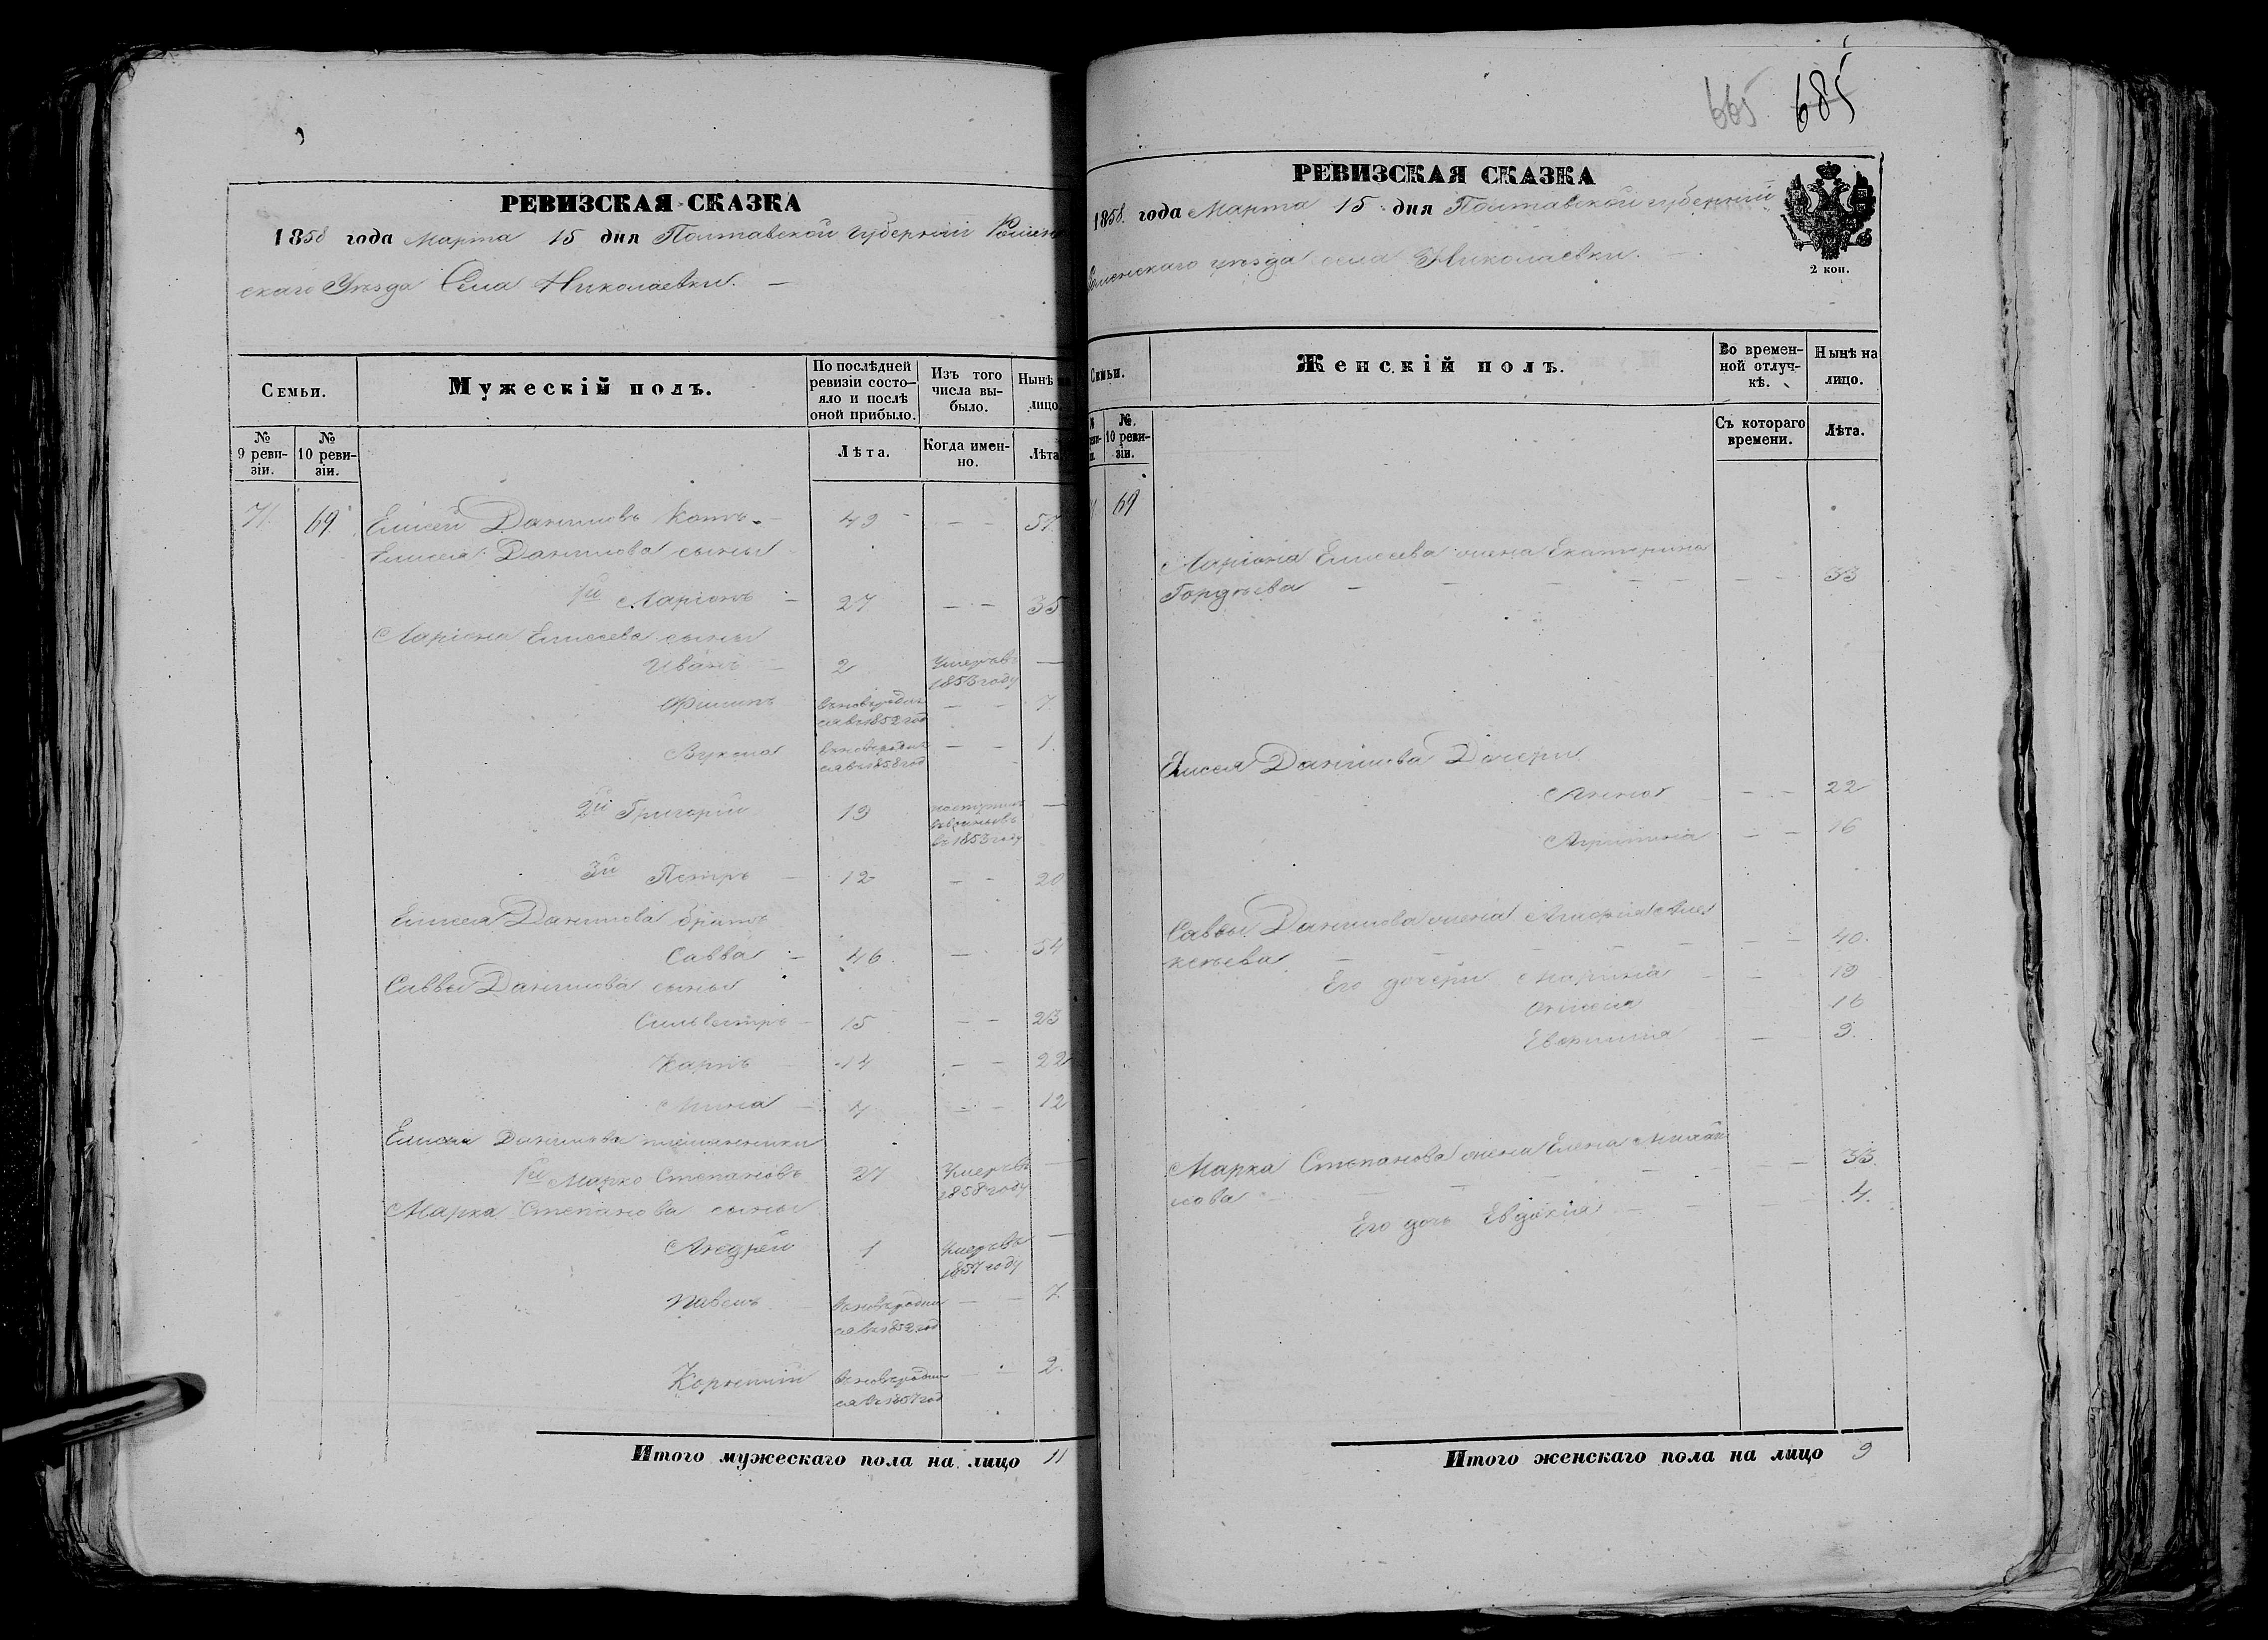 РЕВИЗСКАЯ СКАЗКА
1858 года Марта 15 дня Полтавской губерніи Роменскаго
Уѣзда Села Николаевки.
Семьи.
Мужескій полъ.
По послѣдней ревизіи состо-
яло и послѣ
оной прибыло.
Изъ того
числа вы-
было.
Нынѣ на
лицо.
№
9 реви-
зіи.
№
10 реви-
зіи.
Лѣта.
Когда имен-
но.
Лѣта
71. 69. Елисей Даниловъ Котъ. 49 — — 57.
Елисея Данилова сыны
1й Ларіонъ — 27 — — 35
Ларіона Елисеева сыны
Иванъ — 2 Умеръ въ —
1853 году
Филипъ вновь родил- — — 7.
ся въ 1852 год
Вукола вновь родил- — — 1.
ся въ 1858 год
2й Григорій 19 поступилъ —
въ 1853 году
3й Петръ — 12 — — 20
Елисея Данилова братъ
Савва — 46. — 54
Саввы Данилова сыны
Сильвестръ — 15 — — 23
Карпъ 14 — — 22
Мина — 4 — — 12
Елисея Данилова племянники
1й Марко Степановъ 27 Умеръ въ —
1858 году
Марка Степанова сыны
Андрей 1 Умеръ въ —
1857 году
Павелъ вновь родил- — — 7.
ся въ 1852 год
Корнилій вновь родил- — 2.
ся въ 1857 год
Итого мужескаго пола на лицо 11
665 685
РЕВИЗСКАЯ СКАЗКА
1858. года Марта 15 дня Полтавской губерніи
Роменскаго уѣзда села Николаевки.
2 коп.
Семьи.
Женскій полъ.
Во времен-
ной отлуч-
кѣ.
Нынѣ на
лицо.
№.
10 реви-
зіи.
Съ котораго
времени.
Лѣта.
69
Ларіона Елисеева жена Екатерина
Гордѣева — — — — — — — 33
Елисея Данилова Дочери
Анна — — 22
— — 16
Саввы Данилова жена Агафія Алек
сѣева — — — — — — 40.
Его дочери Марина — — 19
16
— 9.
Марка Степанова жена Елена Михай
лова — — — — — 33.
Его дочь Евдокія — — — 4.
Итого женскаго пола на лицо 9